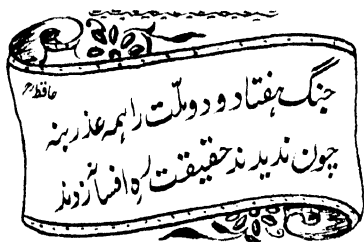 حافظ رح
جنگ هفتاد و دو ملّت را همه عذر بنه
چون ندیدند حقیقت رهِ افسانه زدند